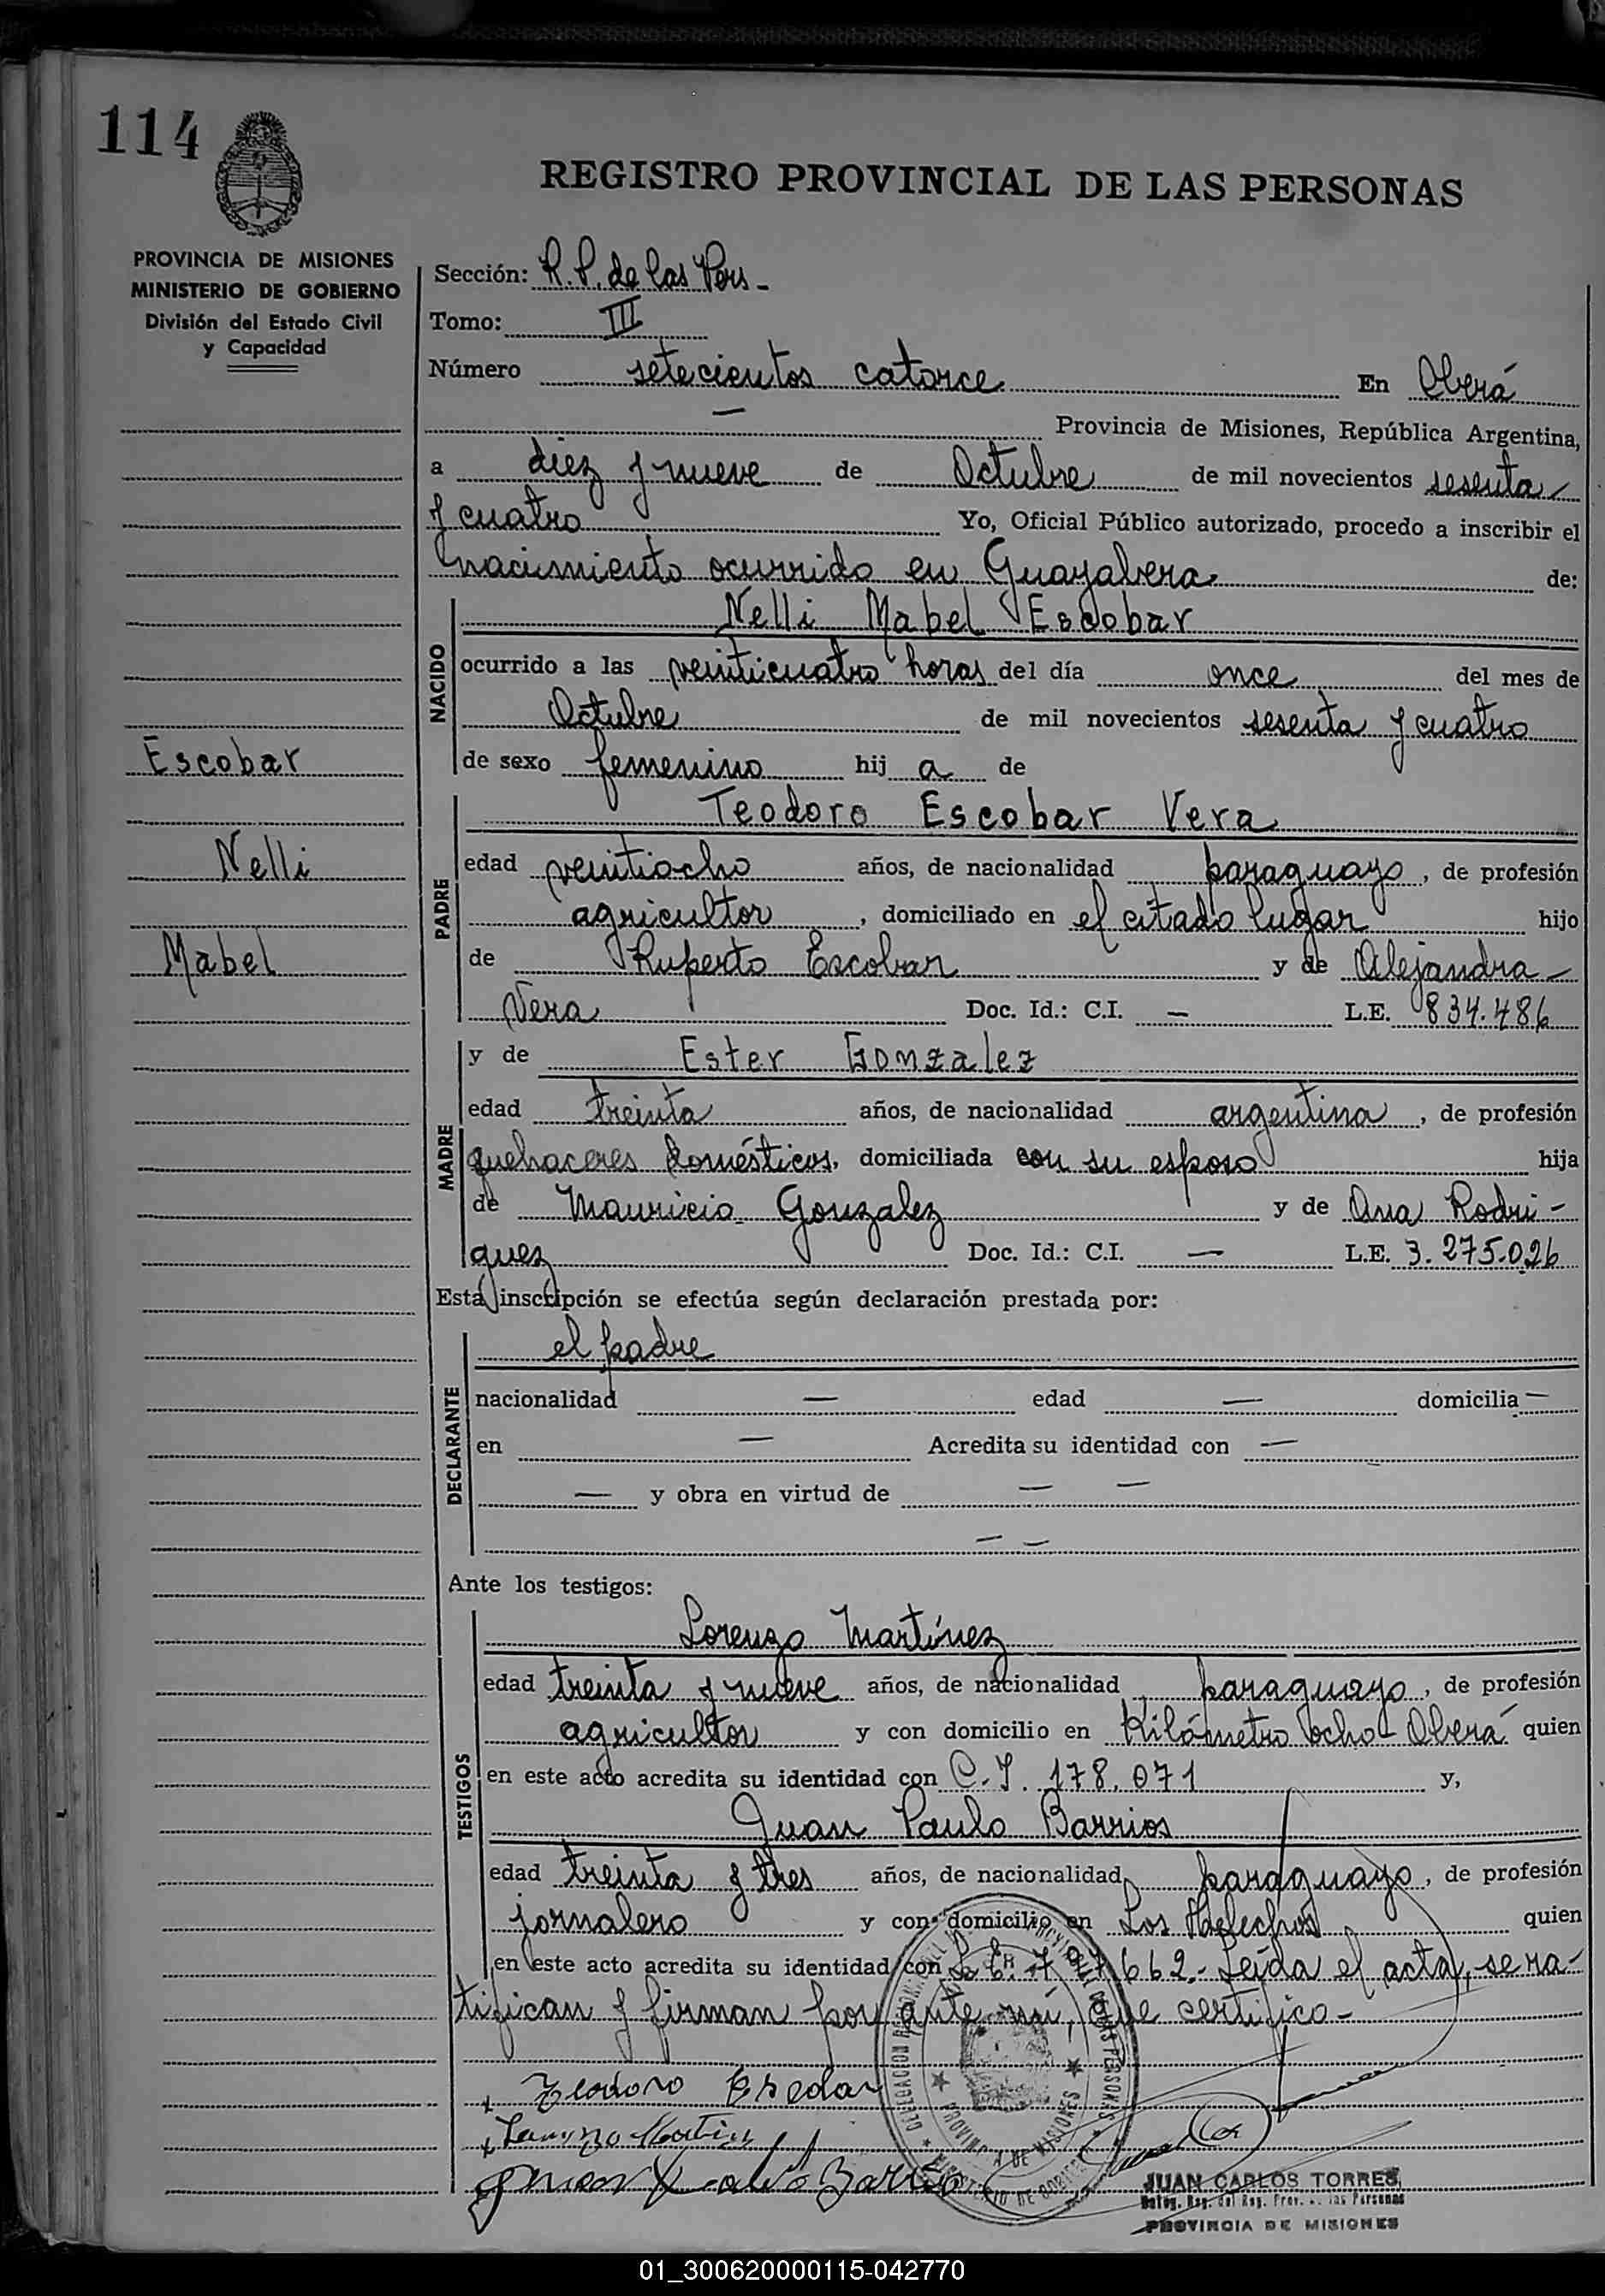 114
REGISTRO PROVINCIAL DE LAS PERSONAS
PROVINCIA DE MISIONES
MINISTERIO DE GOBIERNO
División del Estado Civil
y Capacidad
Escobar
Nelli
Mabel
Sección: R.P. de las Pers -
Tomo: III
Número setecientos catorce En Oberá
— Provincia de Misiones, República Argentina,
a diez y nueve de Octubre de mil novecientos sesenta
y cuatro Yo, Oficial Público autorizado, procedo a inscribir el
nacimiento ocurrido en Guayabera de:
NACIDO
Nelli Mabel Escobar
ocurrido a las veinticuatro horas del día once del mes de
Octubre de mil novecientos sesenta y cuatro
de sexo femenino hij a de
PADRE
Teodoro Escobar Vera
edad veintiocho años, de nacionalidad paraguayo, de profesión
agricultor, domiciliado en el citado lugar hijo
de Ruperto Escobar y de Alejandra
Vera Doc. Id.: C.I. — L.E. 834.486
MADRE
y de Ester Gonzalez
edad treinta años, de nacionalidad argentina, de profesión
quehaceres domésticos, domiciliada con su esposo hija
de Mauricio Gonzalez y de Ana Rodri-
guez Doc. Id.: C.I. — L.E. 3.275.026
Esta inscripción se efectúa según declaración prestada por:
DECLARANTE
el padre
nacionalidad — edad — domicilia —
en — Acredita su identidad con —
— y obra en virtud de — —
— —
Ante los testigos:
TESTIGOS
Lorenzo Martínez
edad treinta y nueve años, de nacionalidad paraguayo, de profesión
agricultor y con domicilio en Kilómetro ocho - Oberá quien
en este acto acredita su identidad con C.I. 178.071 y,
Juan Paulo Barrios
edad treinta y tres años, de nacionalidad paraguayo, de profesión
jornalero y con domicilio en Los Helechos quien
en este acto acredita su identidad con 662.- Leída el acta, se ra-
tifican y firman por ante mí, que certifico -
Teodoro Escobar
PROVINCIA DE MISIONES
JUAN CARLOS TORRES
Deleg. Reg. del Reg. Prov. de las Personas
PROVINCIA DE MISIONES
01_300620000115-042770